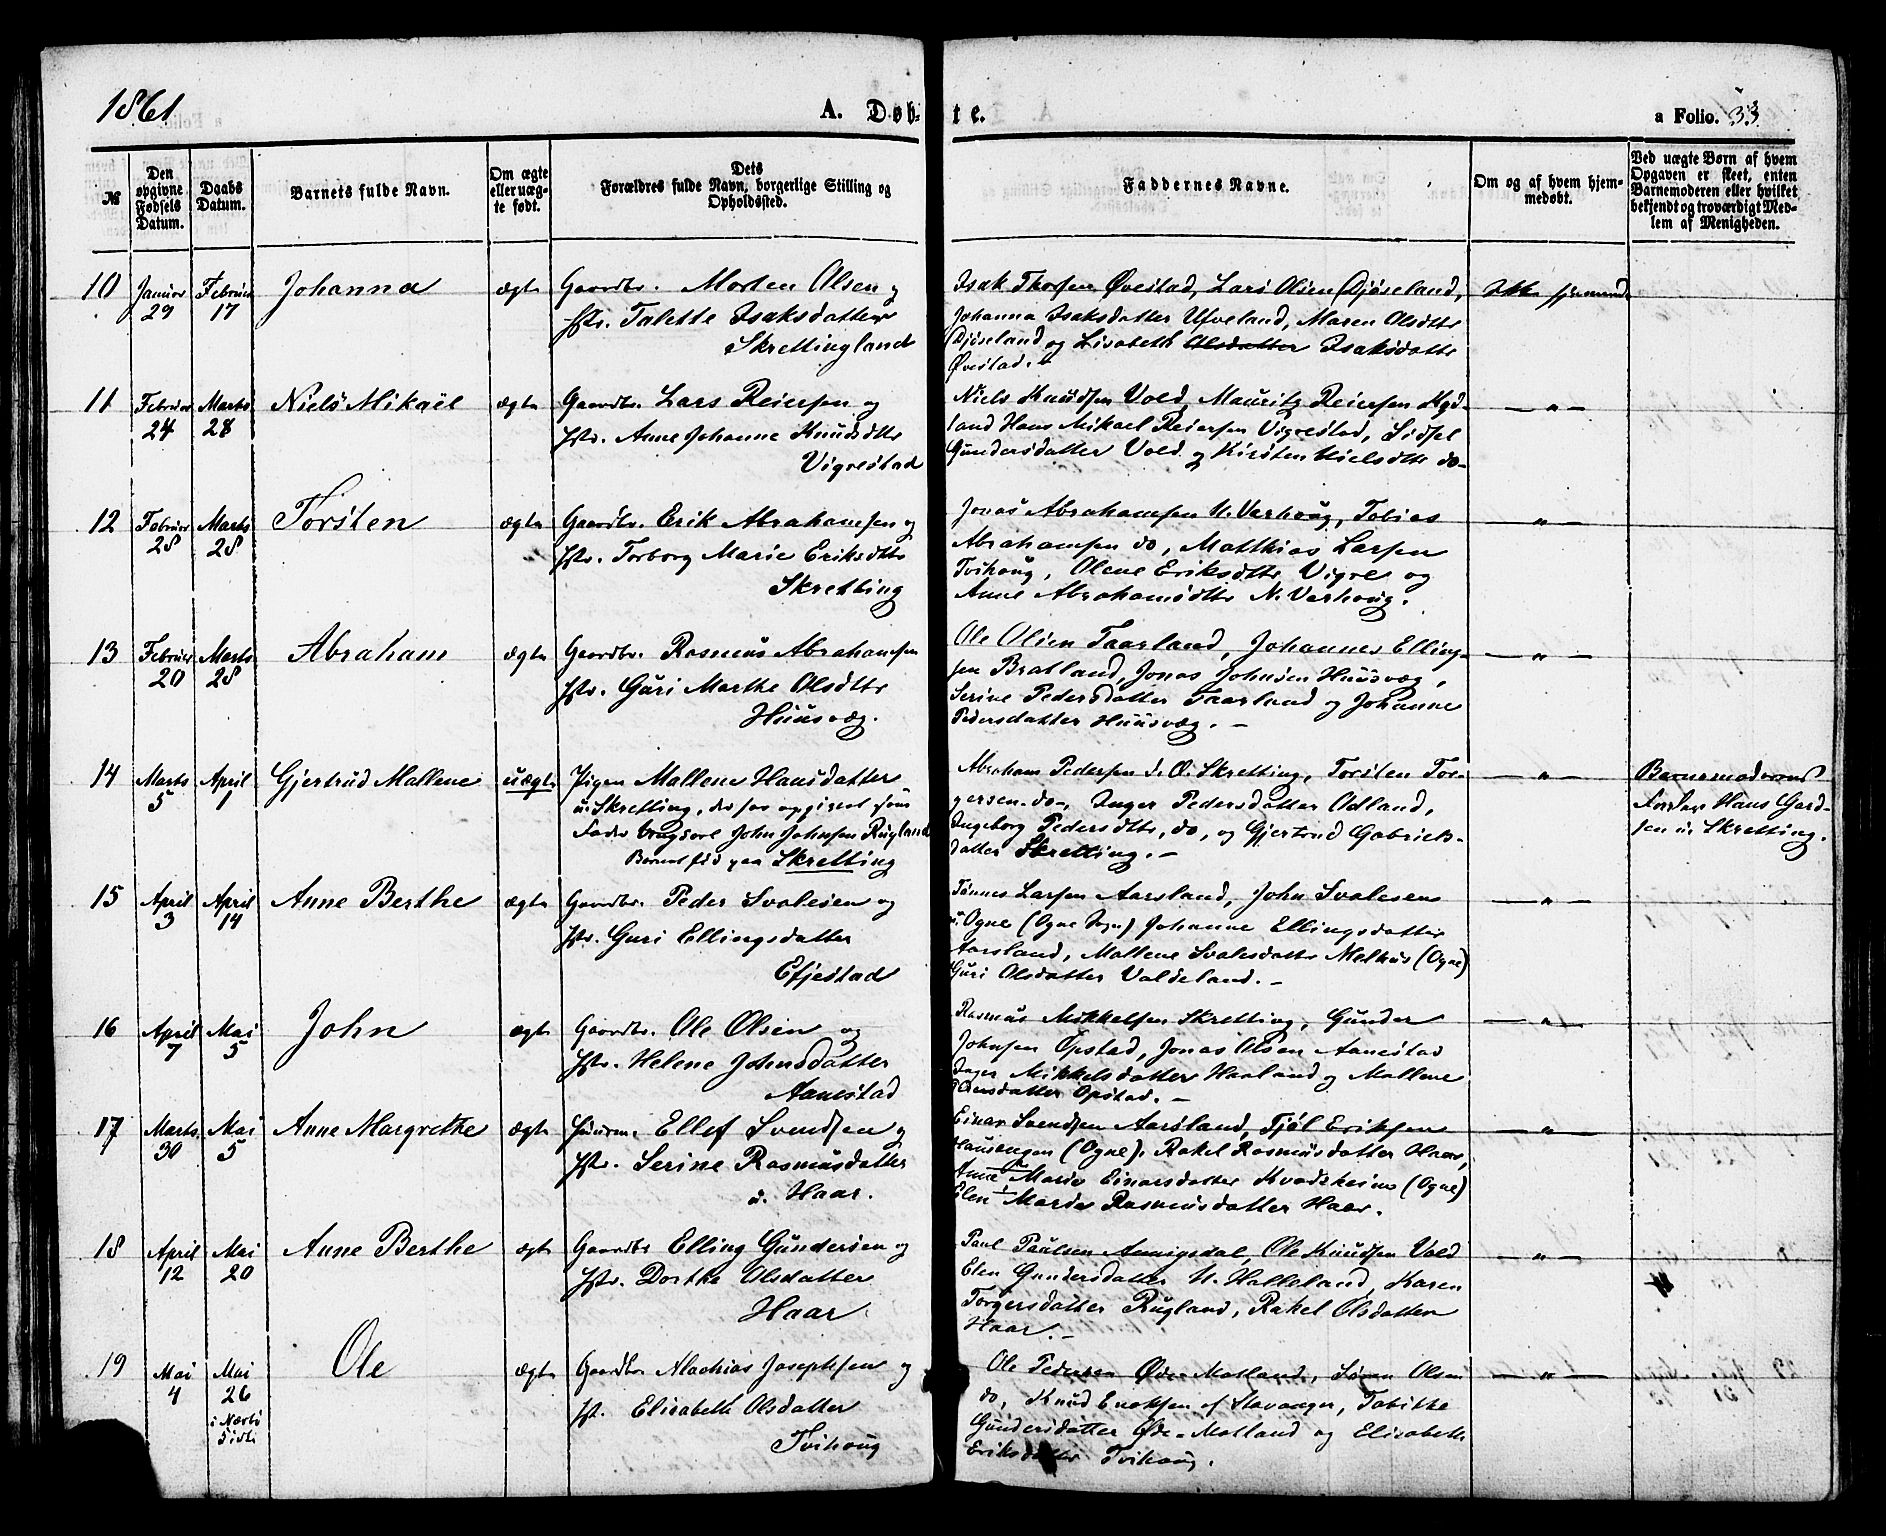 1861
A. Døb-
te.
a Folio. 33
№
Den opgivne Fødsels Datum.
Daabs Datum.
Barnets fulde Navn.
Om ægte eller uægte født.
Dets Forældres fulde Navn, borgerlige Stilling og Opholdssted.
Faddernes Navne.
Om og af hvem hjemmedøbt.
Ved uægte Børn af hvem Opgaven er skeet, enten Barnemoderen eller hvilket bekjendt og troværdigt Medlem af Menigheden.
10 Januar 29 Februar 17 Johanna ægte
Gaardbr. Morten Olsen og
Hstr. Talette Isaksdatter
Skrettingland
Isak Thorsen Øvestad, Lars Olsen Djøseland,
Johanna Isaksdatter Ufveland, Maren Olsdttr
Djøseland og Lisabeth Olsdatter Isaksdattr
Øvestad.
Ikke hjemmed.
11 Februar 24 Marts 28 Niels Mikael ægte
Gaardbr. Lars Reiersen og
Hstr. Anne Johanne Knudsdttr
Vigrestad
Niels Knudsen Vold, Mauritz Reiersen Kyd-
land Hans Mikael Reiersen Vigrestad, Sidsel
Gundersdatter Vold og Kirsten Nielsdttr do-
— " —
12 Februar 28 Marts 28 Torsten ægte
Gaardbr. Erik Abrahamsen og
Hstr. Torborg Marie Eriksdttr
Skretting
Jonas Abrahamsen N. Varhoug, Tobias
Abrahamsen do, Matthias Larsen
Tvihoug, Olene Eriksdttr Vigre og
Anne Abrahamsdttr N. Varhoug.
— " —
13 Februar 20 Marts 28 Abraham ægte
Gaardbr. Rasmus Abrahamsen
Hstr. Guri Marthe Olsdttr
Huusvæg.
Ole Olsen Taarland, Johannes Elling-
sen Bratland, Jonas Johnsen Huusvæg,
Serine Pedersdatter Taarland og Johanne
Pedersdatter Huusvæg. —
— " —
14 Marts 5 April 1 Gjertrud Mallene uægte
Pigen Mallene Hansdatter
u. Skretting, der har opgivet som
Fader Ungkarl John Johnsen Rugland
Barnet fød paa Skretting
Abraham Pedersen d. O. Skretting, Torsten Tor-
gersen do, Inger Pedersdatter Odland,
Ingeborg Pedersdttr, do, og Gjertrud Gabriels-
datter Skretting. —
— " —
Barnemoderens
Fader Hans Gard-
sen u. Skretting.
15 April 3 April 14 Anne Berthe ægte
Gaardbr. Peder Svalesen og
Hstr. Guri Ellingsdatter
Efjestad
Tønnes Larsen Aarsland, John Svalesen
u. Ogne (Ogne Sogn) Johanne Ellingsdatter
Aarsland, Mallene Svalesdattr Melhus (Ogne)
Guri Olsdatter Valdeland. —
— " —
16 April 7 Mai 5 John ægte
Gaardbr. Ole Olsen og
Hstr. Helene Johnsdatter
Aanestad
Rasmus Mikkelsen Skretting, Gunder
Johnsen Opstad, Jonas Olsen Aanestad
Inger Mikkelsdatter Haaland og Mallene
Opstad. —
— " —
17 Marts 30 Mai 5 Anne Margrethe ægte
Huusm. Ellef Svendsen og
Hstr. Serine Rasmusdatter
u. Haar.
Einar Svendsen Aarsland, Tjøl Eriksen
Hausengen (Ogne), Rakel Rasmusdatter Haar,
Anne Marie Einarsdatter Kvadsheim (Ogne)
Elen Marthe Rasmusdatter Haar.
— " —
18 April 12 Mai 20 Anne Berthe ægte
Gaardbr Elling Gundersen og
Hstr. Dorthe Olsdatter
Haar
Paul Paulsen Auesgsdal, Ole Knudsen Vold
Elen Gundersdatter N. Halleland, Karen
Torgersdatter Rugland, Rakel Olsdatter
Haar. —
— " —
19 Mai 4 Mai 26 i Nærbø Kirke Ole ægte
Gaardbr. Mathias Josephsen og
Hst. Elisabeth Olsdatter
Tvihoug
Ole Pedersen Øde-Motland, Søren Olsen
do, Knud Enoksen af Stavanger, Tabithe
Gundersdatter Øde-Motland og Elisabeth
Eriksdatter Tvihoug.
— " —